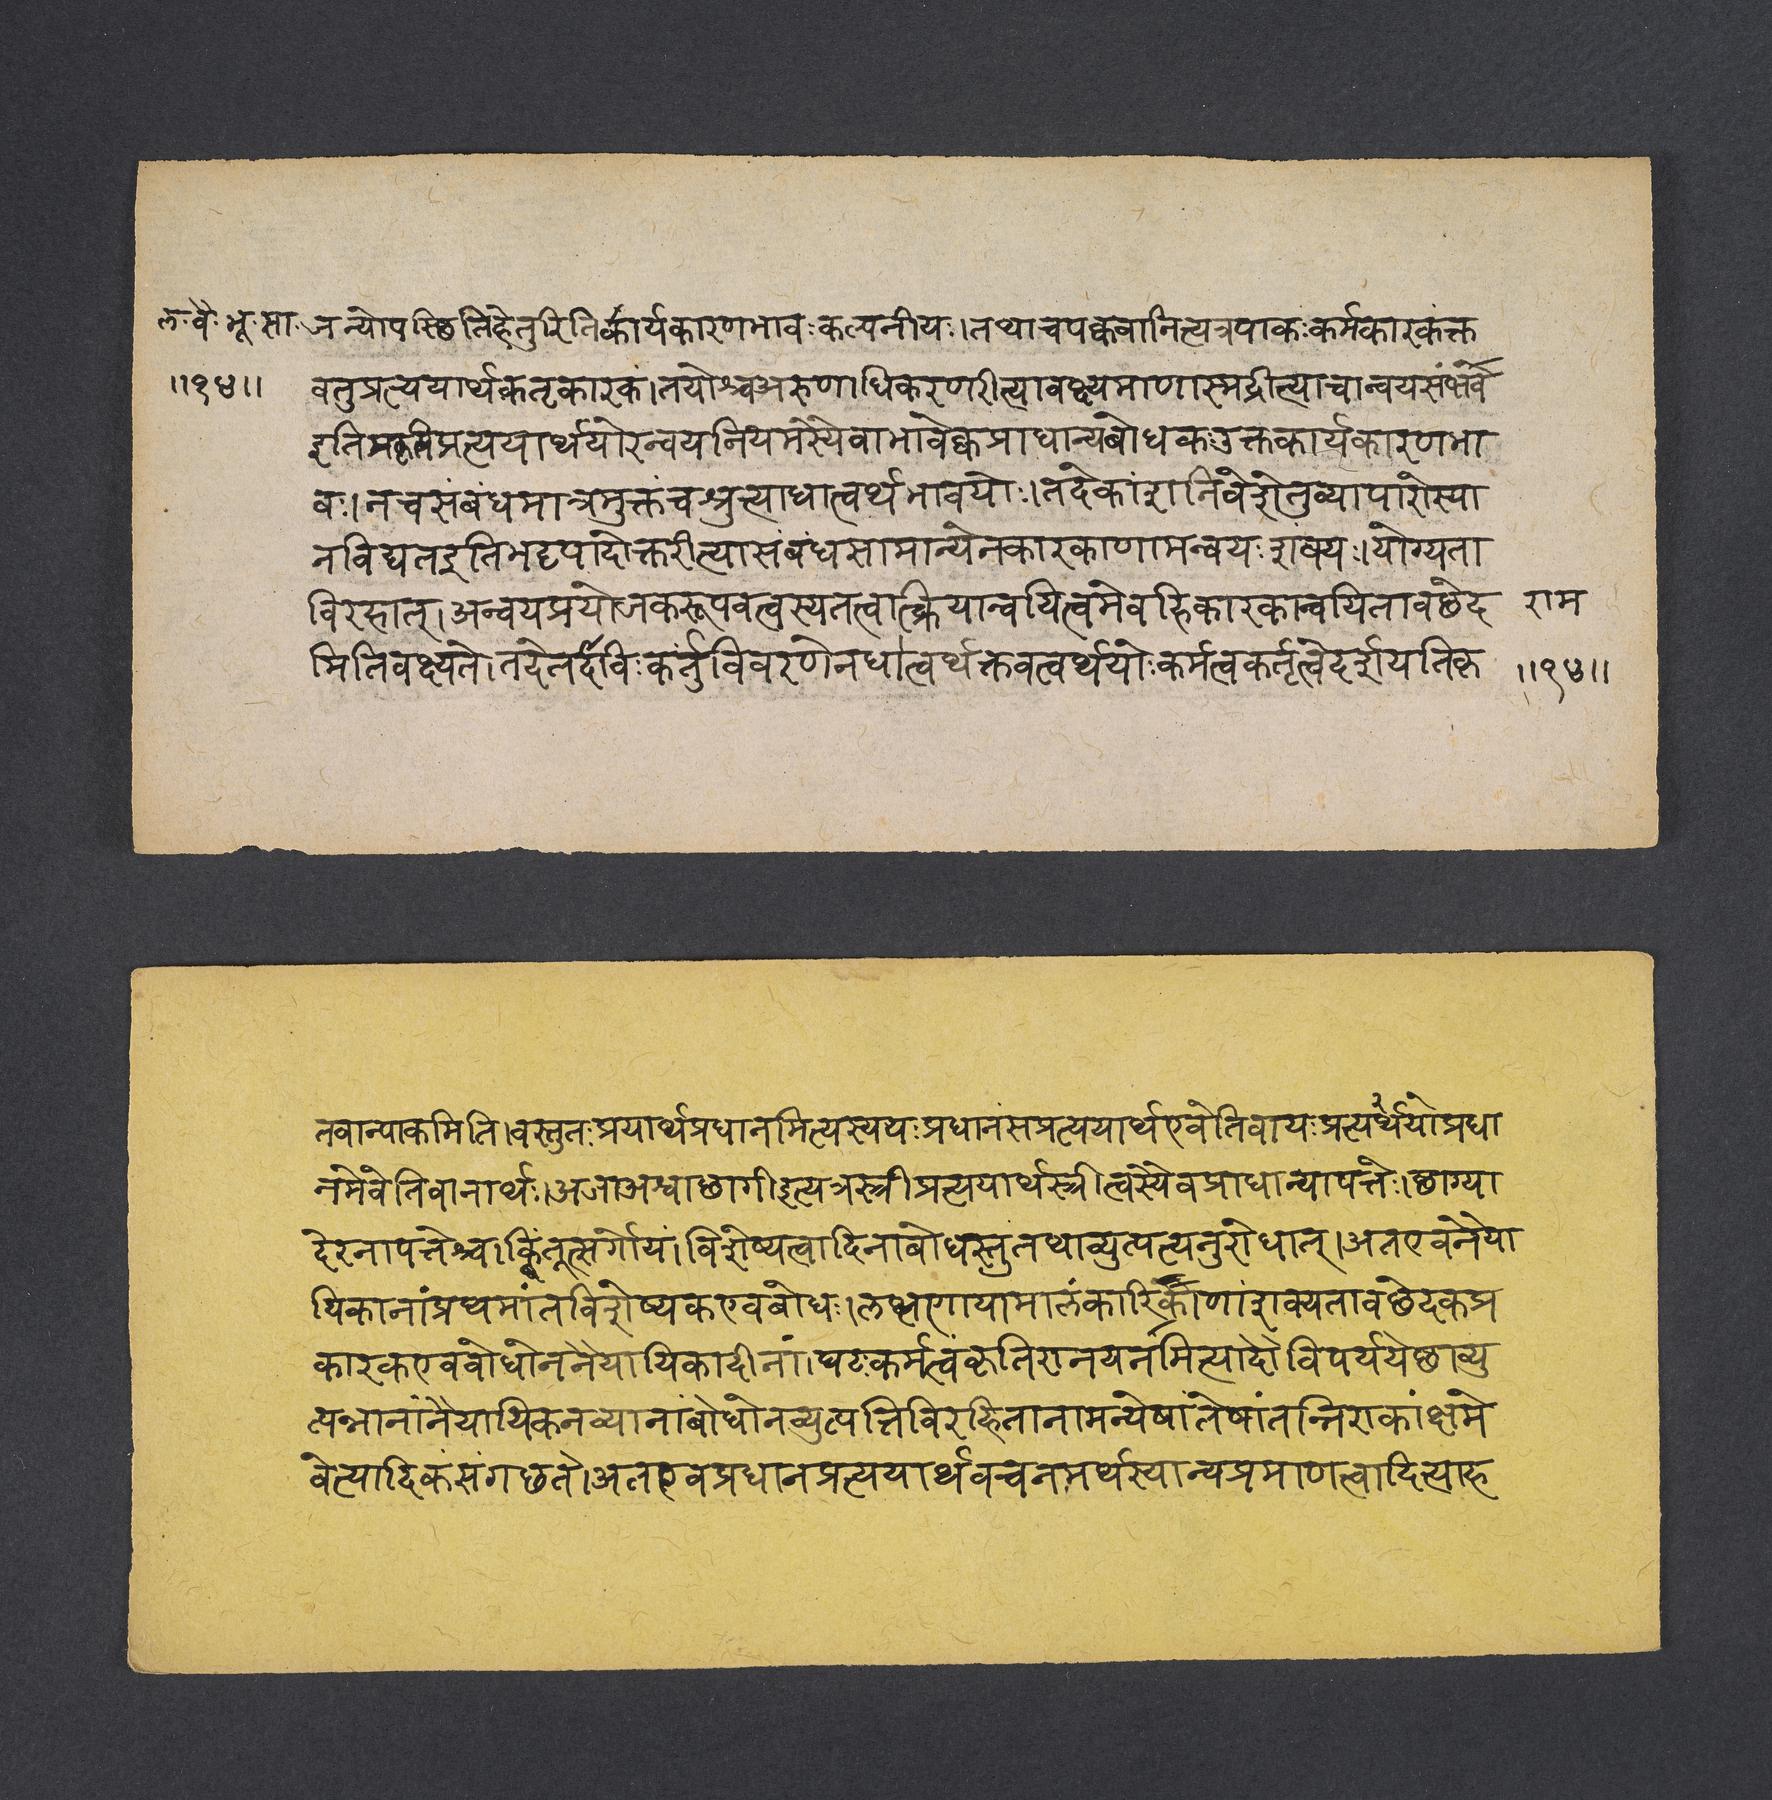 ल॰ वै॰ भू॰ सा॰ अन्योपस्छितिहेतुरितिकार्यकारणभावःकल्पनीयः।तथाचपक्ववानित्यत्रपाकःकर्मकारकंक्त
॥१४॥ वतुप्रत्ययार्थःकतृकारकं।तयोश्चअरुणाधिकरणरीत्यावक्ष्यमाणास्मद्रीत्याचान्वयसंभवे
इतिप्रकृतिप्रत्ययार्थयोरन्वयनियमस्यैवाभावेक्वप्राधान्यबोधकउक्तकार्यकारणभा
वः।नचसंबंधमात्रमुक्तंचश्रुत्याधात्वर्थभावयोः।तदेकांशनिवेशेतुव्यापारोस्या
नविद्यतइतिभट्टपादोक्तरीत्यासंबंधसामान्येनकारकाणामन्वयःशंक्यः।योग्यता
विरहात्।अन्वयप्रयोजकरूपवत्वस्यतत्वात्क्रियान्वयित्वमेवहिकारकान्वयितावछेद राम
मितिवक्ष्यते।तदेतर्दविःकर्तुविवरणेनधात्वर्थक्तवत्वर्थयोःकर्मत्वकर्तृत्वेदर्शयतिकृ ॥१४॥
तवान्पाकमिति।वस्तुतःप्रयार्थप्रधानमित्यस्ययःप्रधानंसप्रत्ययार्थएवेतिवायःप्रत्यर्थयोप्रधा
नमेवेतिवानार्थः।अजाअश्वाछागीइत्यत्रस्त्रीप्रत्ययार्थस्त्रीत्वस्यैवप्राधान्यापत्तेः।छाग्या
देरनापत्तेश्च।किंतूत्सर्गोयं।विशेष्यत्वादिनाबोधस्तुतथाव्युत्पत्यनुरोधात्।अतएवनैया
यिकानांप्रथमांतविशेष्यकएवबोधः।लक्षणायामालंकारिकाणांशक्यतावछेदकप्र
कारकएवबोधोननैयायिकादीनां।घटःकर्मत्वंकृतिरानयनमित्यादौविपर्ययेछाव्यु
त्पन्नानांनैयायिकनव्यानांबोधोनव्युत्पत्तिविरहितानामन्येषांतेषांतन्निराकांक्षमे
वेत्यादिकंसंगछते।अतएवप्रधानप्रत्ययार्थवचनमर्थस्यान्यप्रमाणत्वादित्याह